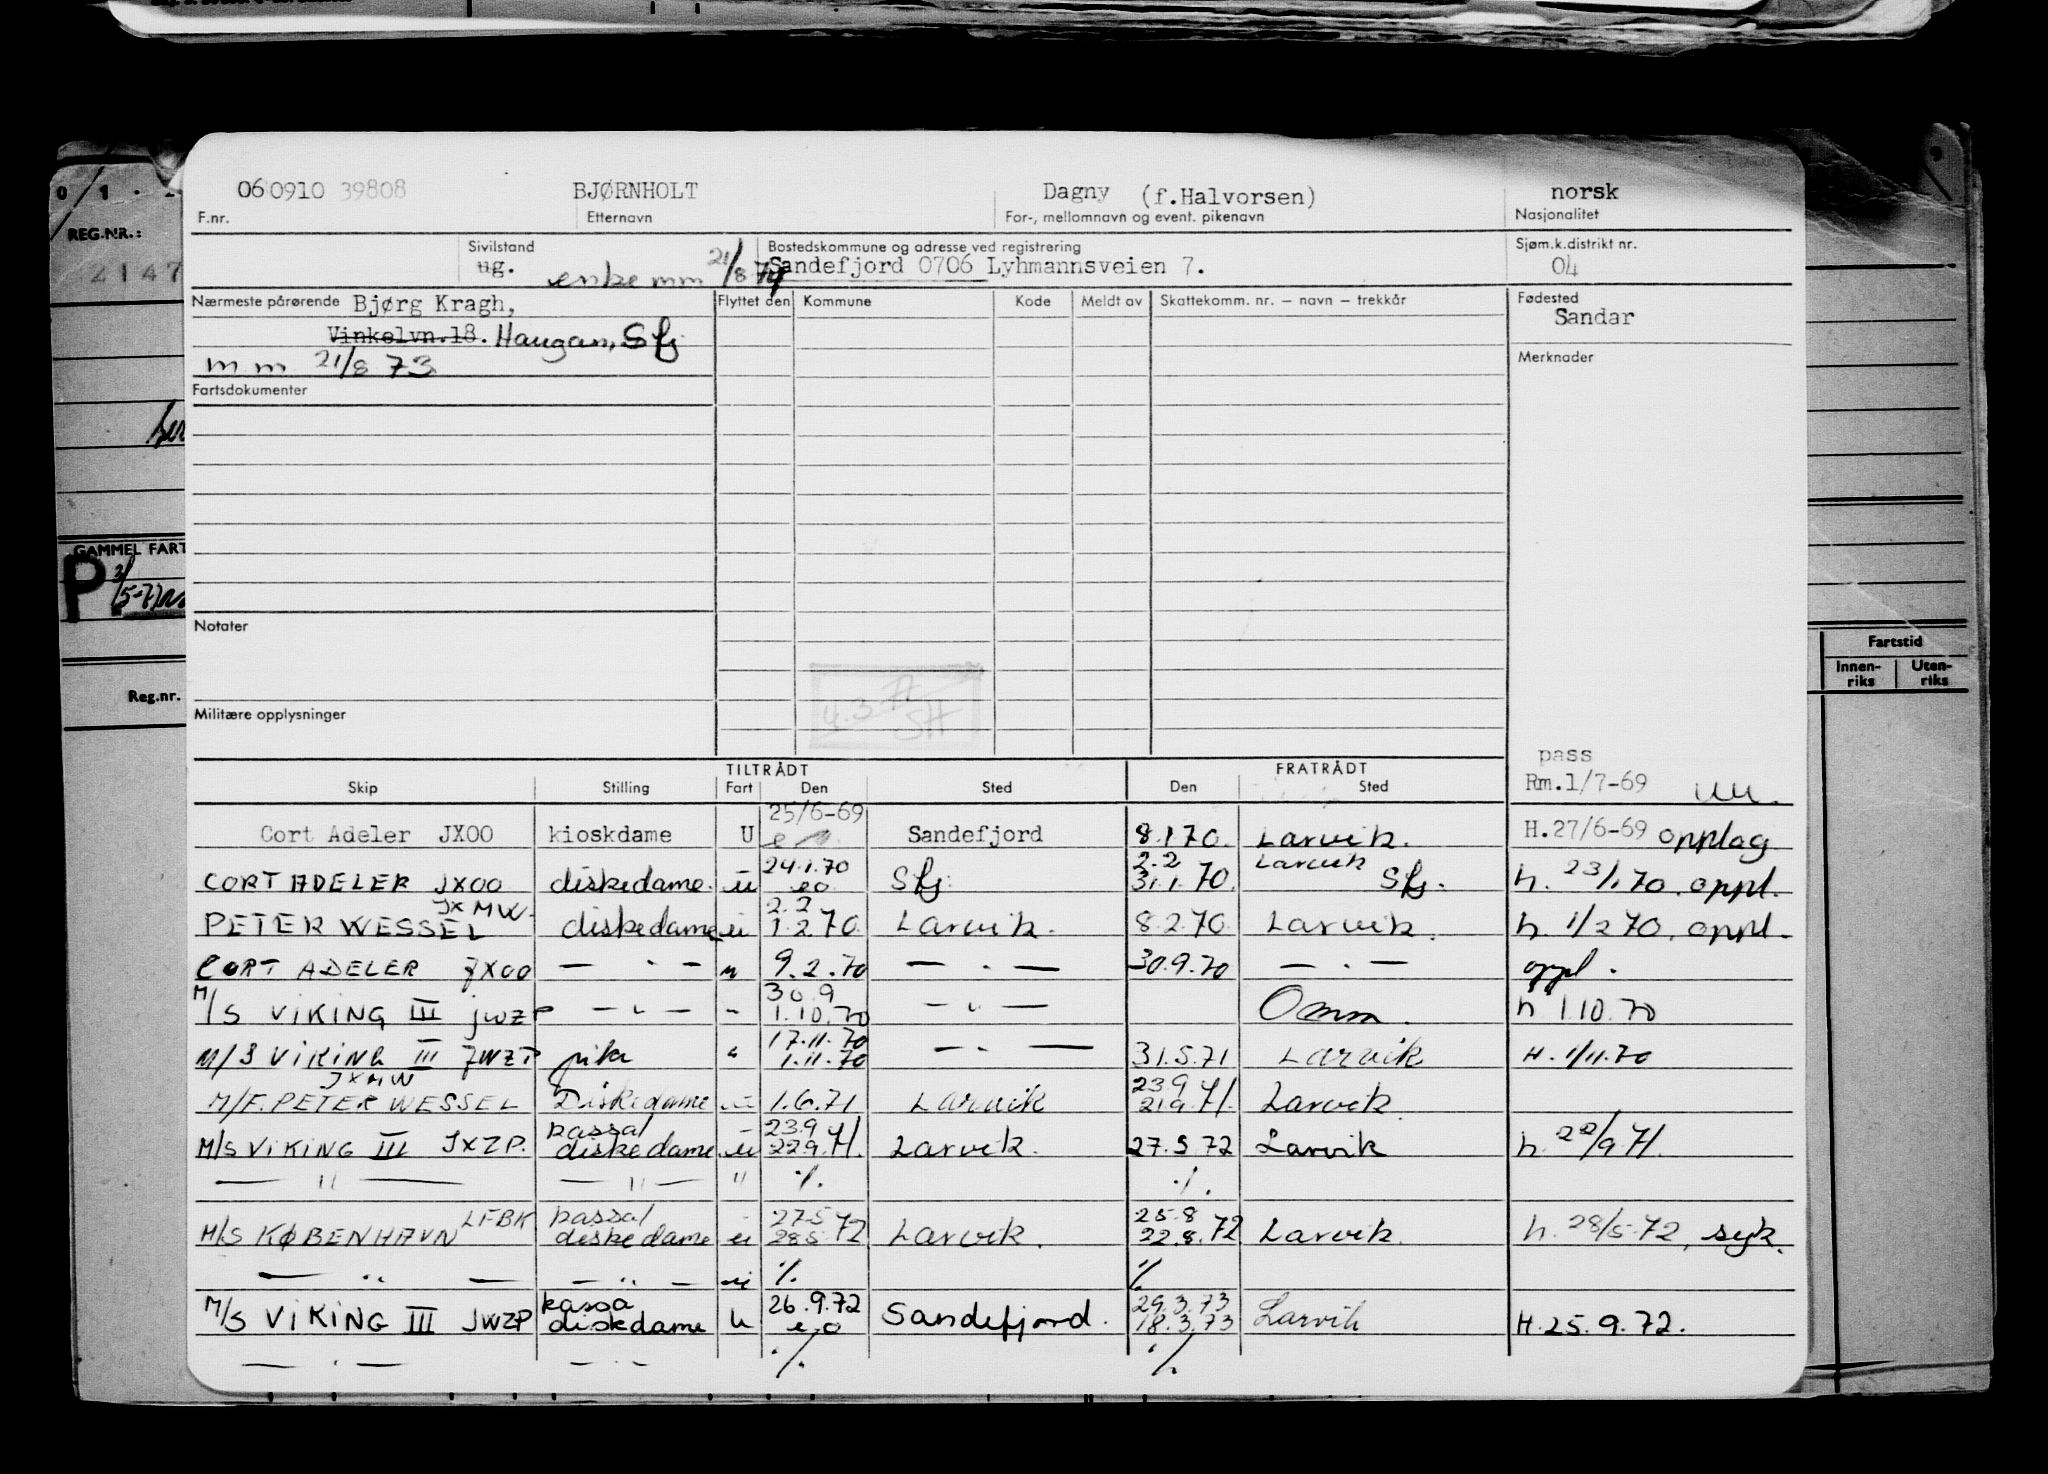 060910 39808 BJØRNHOLT Dagny (f.Halvorsen) norsk
F.nr. Etternavn For-, mellomnavn og event. pikenavn Nasjonalitet
Sivilstand Bostedskommune og adresse ved registrering Sjøm.k.distrikt nr.
ug. enke mm 21/8 74 Sandefjord 0706 Lyhmannsveien 7. 04
Nærmeste pårørende Bjørg Kragh, Flyttet den Kommune Kode Meldt av Skattekomm. nr. – navn – trekkår Fødested
Vinkelvn.18. Haugan, Sfj Sandar
mm 21/8 73 Merknader
Fartsdokumenter
REG.NR.:
2147
GAMMEL FART
P
Notater
Fartstid
Innen-riks Uten-riks
Reg.nr.
4.3.77
SH
Militære opplysninger
pass
TILTRÅDT FRATRÅDT
Skip Stilling Fart Den Sted Den Sted Rm.1/7-69
25/6-69
Cort Adeler JXOO kioskdame U Sandefjord 8.1 70. Larvik. H.27/6-69 opplag
24.1.70 2.2 Larvik
CORT ADELER JXOO diskedame. u eo Sfj 31.1.70. Sfj. h. 23/1 70. oppl.
JXMW. 2.2
PETER WESSEL diskedame u 1.2 70. Larvik. 8.2.70. Larvik. h. 1/2 70. oppl.
CORT ADELER JXOO — " — " 9.2.70 — " — 30.9.70 — " — oppl.
30.9
M/S VIKING III JWZP — " — " 1.10.70 — " — Omm. h 1.10.70
17.11.70
M/S VIKING III JWZP pike " 1.11.70 — " — 31.5.71 Larvik H. 1/11.70
JXMW 23.9
M/F. PETER WESSEL Diskedame u 1.6.71 Larvik 21.9.71. Larvik.
kassa/ 23.9
M/S VIKING III JXZP. diskedame u 22.9.71. Larvik. 27.5.72 Larvik h. 22/9 71.
— " — — " — " ./. ./.
LFBK kassa/ 27.5 25.8
M/S KØBENHAVN diskedame u 28.5 72 Larvik. 22.8.72 Larvik. h. 28/5-72, syk.
— " — — " — u ./. ./.
kassa 26.9.72 29.3.73
M/S VIKING III JWZP diskedame U e.o Sandefjord. 18.3.73 Larvik H.25.9.72.
— " — — " — ./. ./.